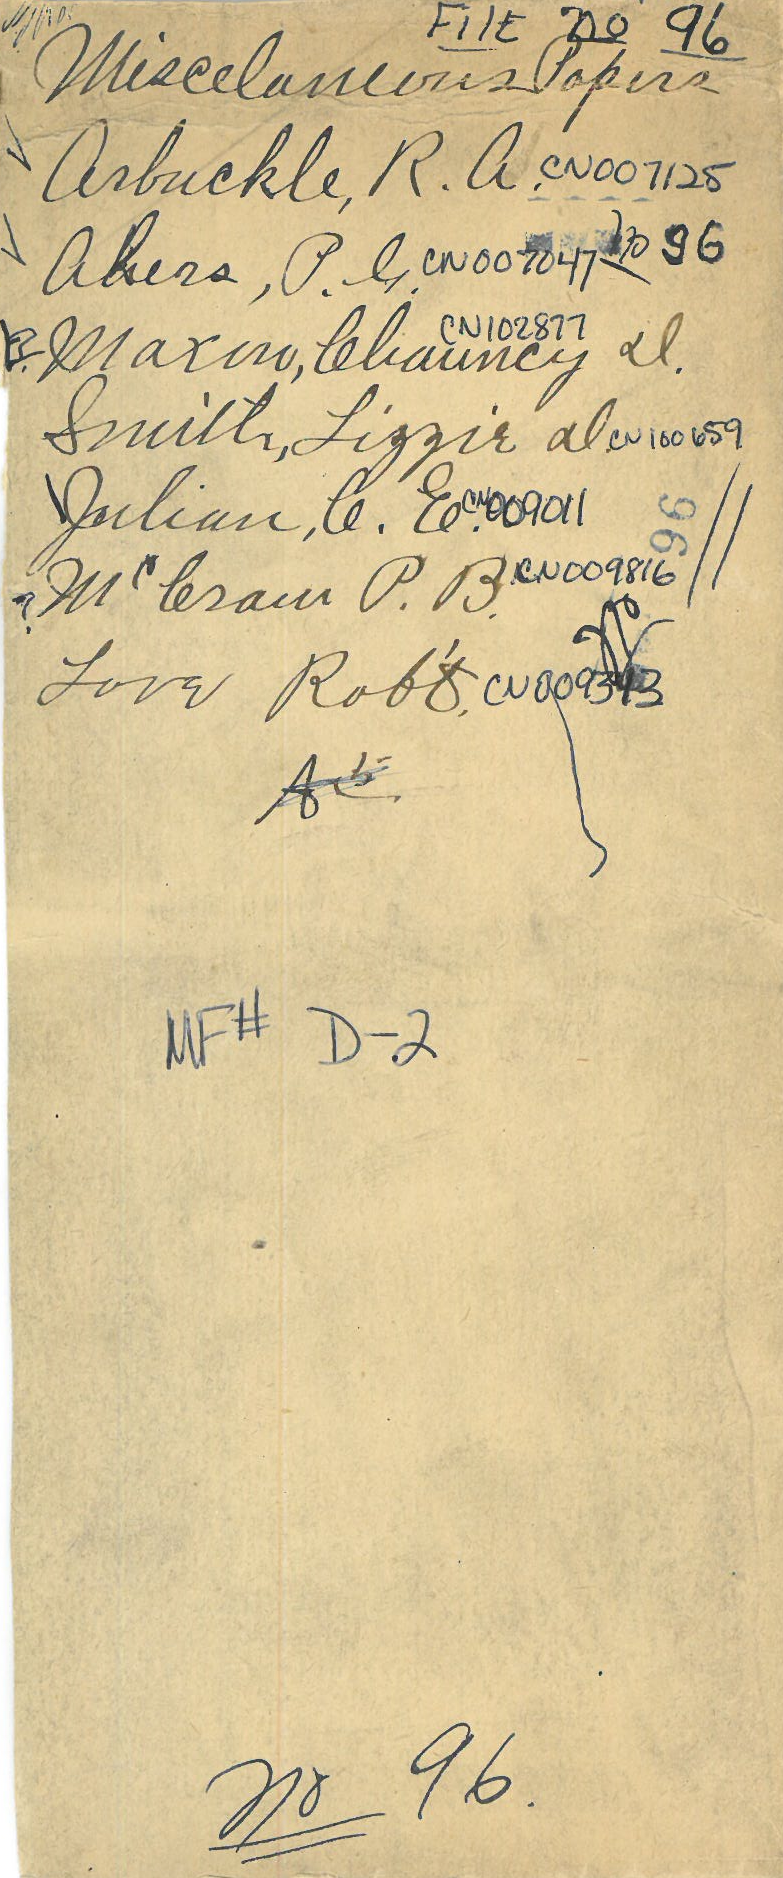 FILE No 96
Miscelaneous Papers
Arbuckle, R. A. CN007125
Akers, P. G. CN007047 No 96
Maxon, Chauncy D. CN102877
Smith, Lizzie D. CN100659
Julian, C. E. CN009011
96
? McCraw P. B. CN009816
Love Rob't. CN009343
No
MF# D-2
No 96.